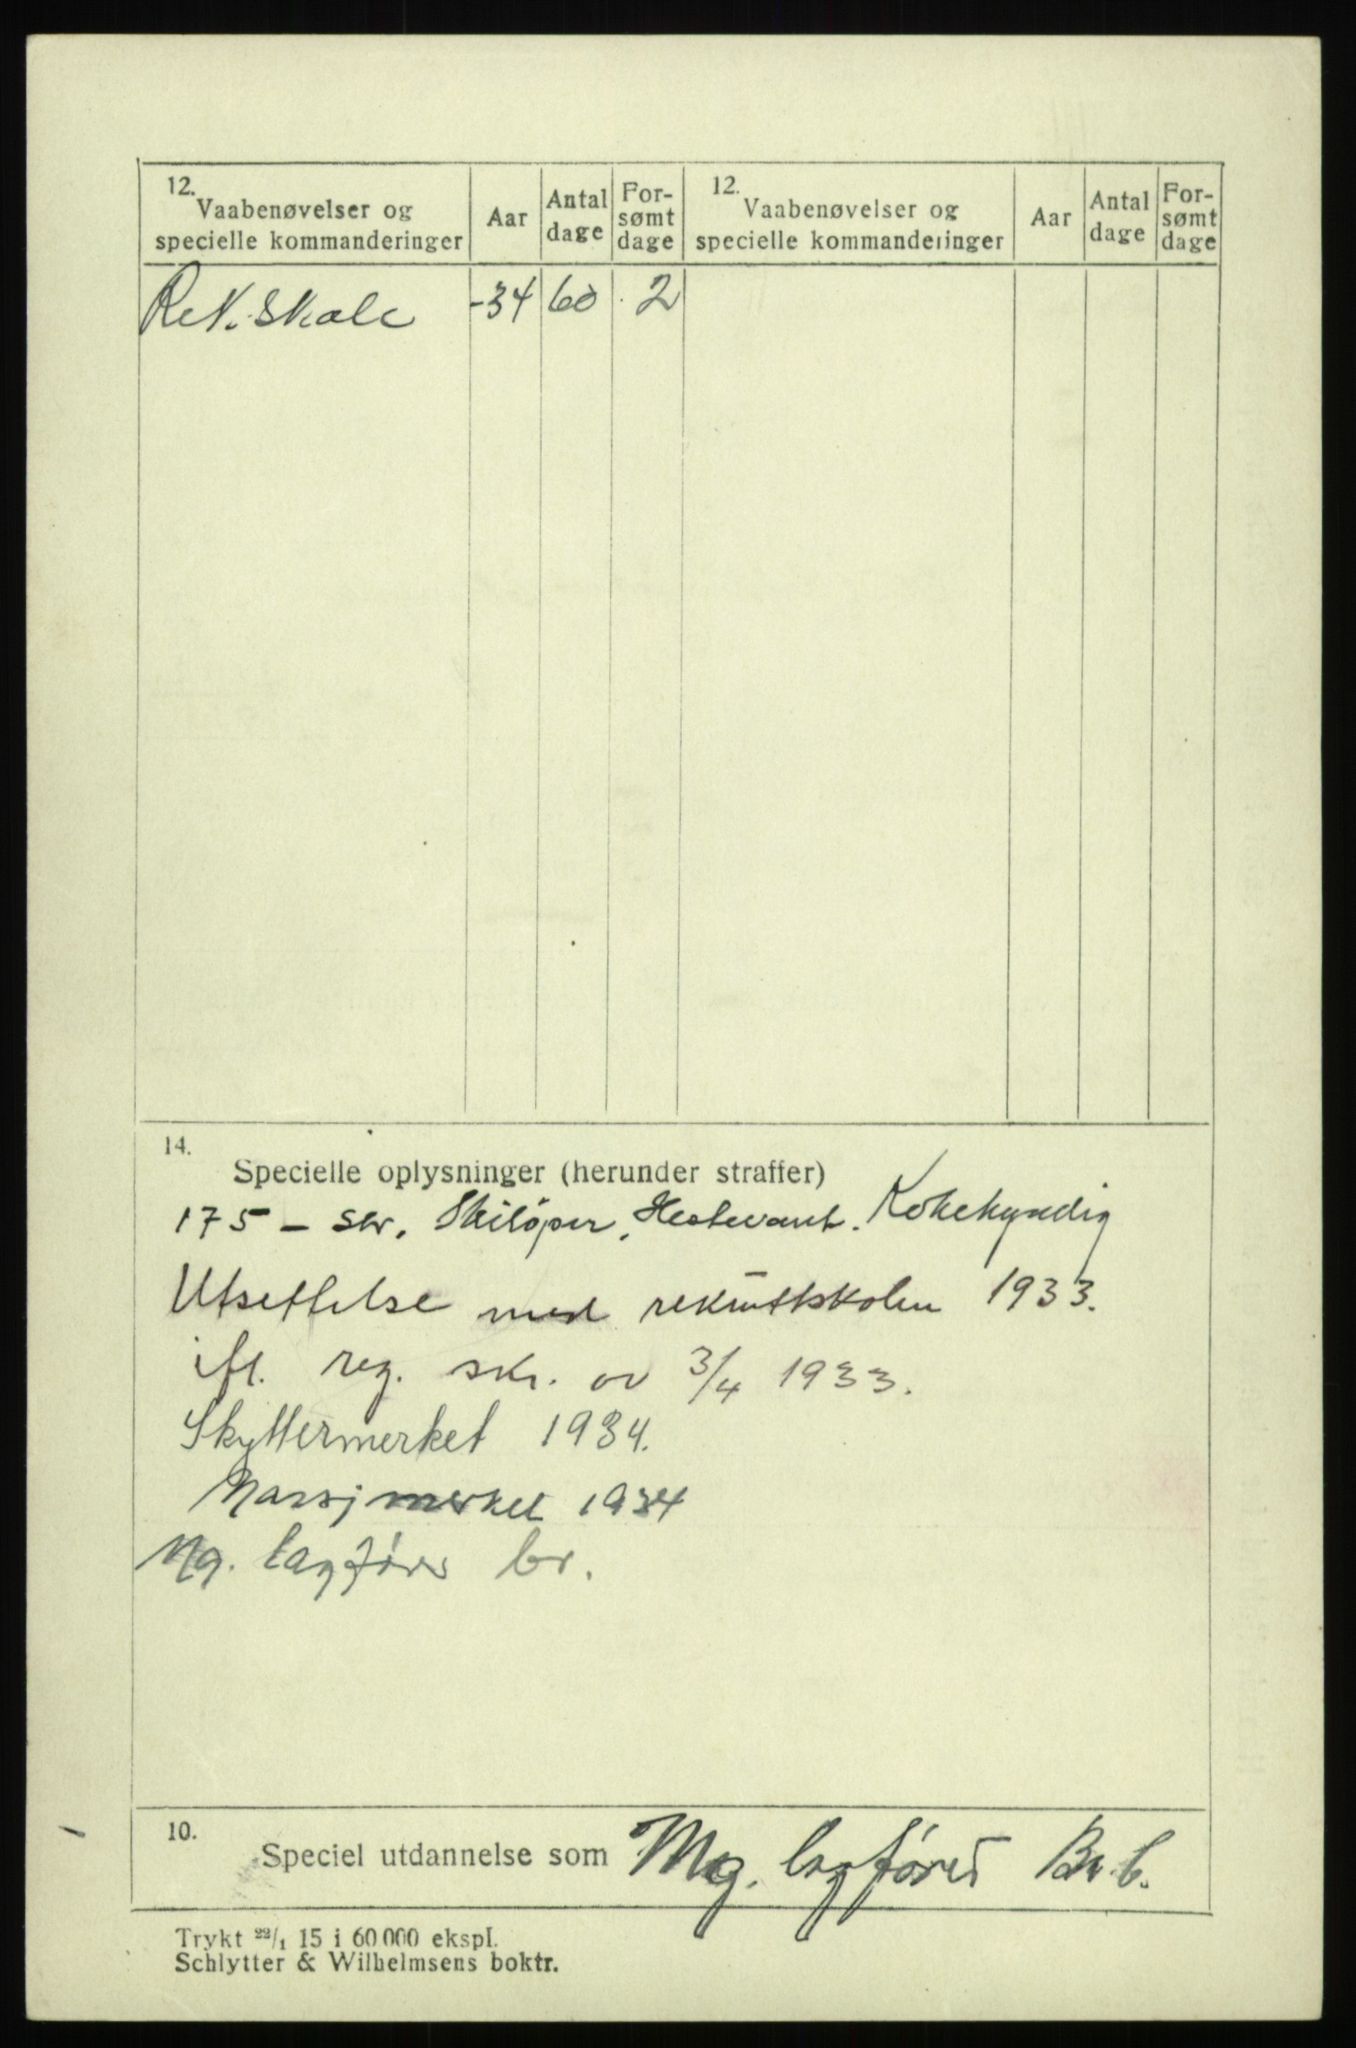 12. Vaabenøvelser og specielle kommanderinger | Aar | Antal dage | For-sømt dage | 12. Vaabenøvelser og specielle kommanderinger | Aar | Antal dage | For-sømt dage
Rek. Skole -34 60 2
14.
Specielle oplysninger (herunder straffer)
175 – skr. Skiløper, Hestevant. Kokekyndig
Utsettelse med rekruttskolen 1933.
ifl. reg. skr. av 3/4 1933.
Skyttermerket 1934.
Marsjmerket 1934
Mg. lagfører br.
10.
Speciel utdannelse som Mg. lagfører Br. b.
Trykt 22/1 15 i 60 000 ekspl.
Schlytter & Wilhelmsens boktr.